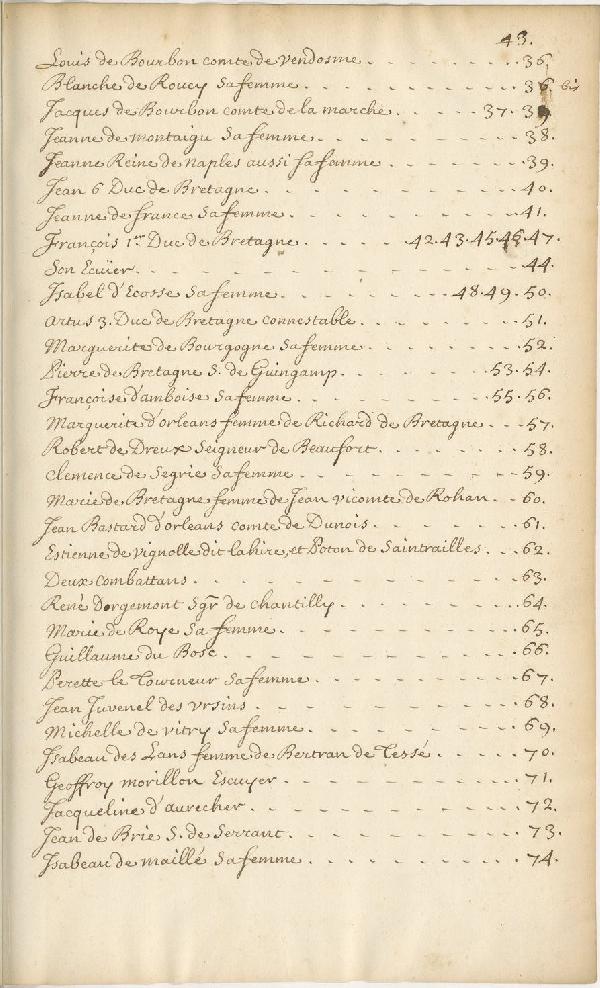 43.
Louis de Bourbon comte de Vendosme . . . . . . . . 36.
Blanche de Roucy Sa femme . . . . . . . . . . 36 bis
Jacques de Bourbon comte de la marche . . . . . . 37. 39
Jeanne de montaigu Sa femme . . . . . . . . . . 38.
Jeanne Reine de naples aussi sa femme . . . . . . . 39.
Jean 6 Duc de Bretagne . . . . . . . . . . . . 40.
Jeanne de france Sa femme . . . . . . . . . . . 41.
François 1er Duc de Bretagne . . . . . . 42. 43. 45. 46. 47.
Son Ecüier . . . . . . . . . . . . . . . . . 44.
Isabel d'Ecosse Sa femme . . . . . . . . 48. 49. 50.
artus 3. Duc de Bretagne connestable . . . . . . . . 51.
Marguerite de Bourgogne Sa femme . . . . . . . . 52.
Pierre de Bretagne S. de Guingamp . . . . . . . 53. 54.
Françoise d'amboise Sa femme . . . . . . . . . 55. 56.
Marguerite d'orleans femme de Richard de Bretagne . . . 57.
Robert de Dreux Seigneur de Beaufort . . . . . . . 58.
Clemence de Segrie Sa femme . . . . . . . . . . . 59.
Marie de Bretagne femme de Jean vicomte de Rohan . . . 60.
Jean Bastard d'orleans comte de Dunois . . . . . . . 61.
Estienne de vignolle dit lahire, et Poton de Saintrailles . . . 62.
Deux combattans . . . . . . . . . . . . . . . 63.
René Dorgemont Sgr de Chantilly . . . . . . . . . 64.
Marie de Roye Sa femme . . . . . . . . . . . . 65.
Guillaume du Bosc . . . . . . . . . . . . . . 66.
Perette le Tourneur Sa femme . . . . . . . . . . 67.
Jean Juvenel des vrsins . . . . . . . . . . . . . 68.
Michelle de vitry Sa femme . . . . . . . . . . . 69.
Isabeau des Lans femme de Bertran de Tessé . . . . . 70.
Geoffroy morillon Escuyer . . . . . . . . . . . . 71.
Jacqueline d'aurecher . . . . . . . . . . . . . . 72.
Jean de Brie S. de Serrant . . . . . . . . . . . . 73.
Isabeau de maillé Sa femme . . . . . . . . . . . . 74.